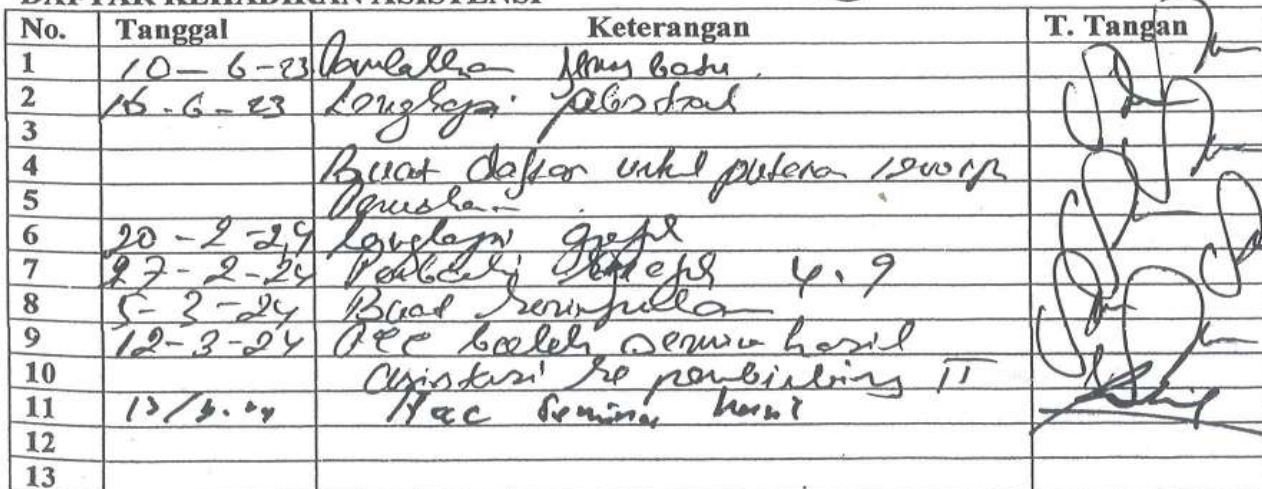 DAFTAR KEHADIRAN ASISTENSI
No. Tanggal Keterangan T. Tangan
1 10-6-23
2 16-6-23 Lengkapi abstrak
3
4 Buat daftar untuk putaran
5
6 20-2-24 Lengkapi grafik
7 27-2-24 Perbaiki grafik 4.9
8 5-3-24 Buat kesimpulan
9 12-3-24 Acc boleh seminar hasil
10 asistensi ke pembimbing II
11 Acc Seminar hasil
12
13